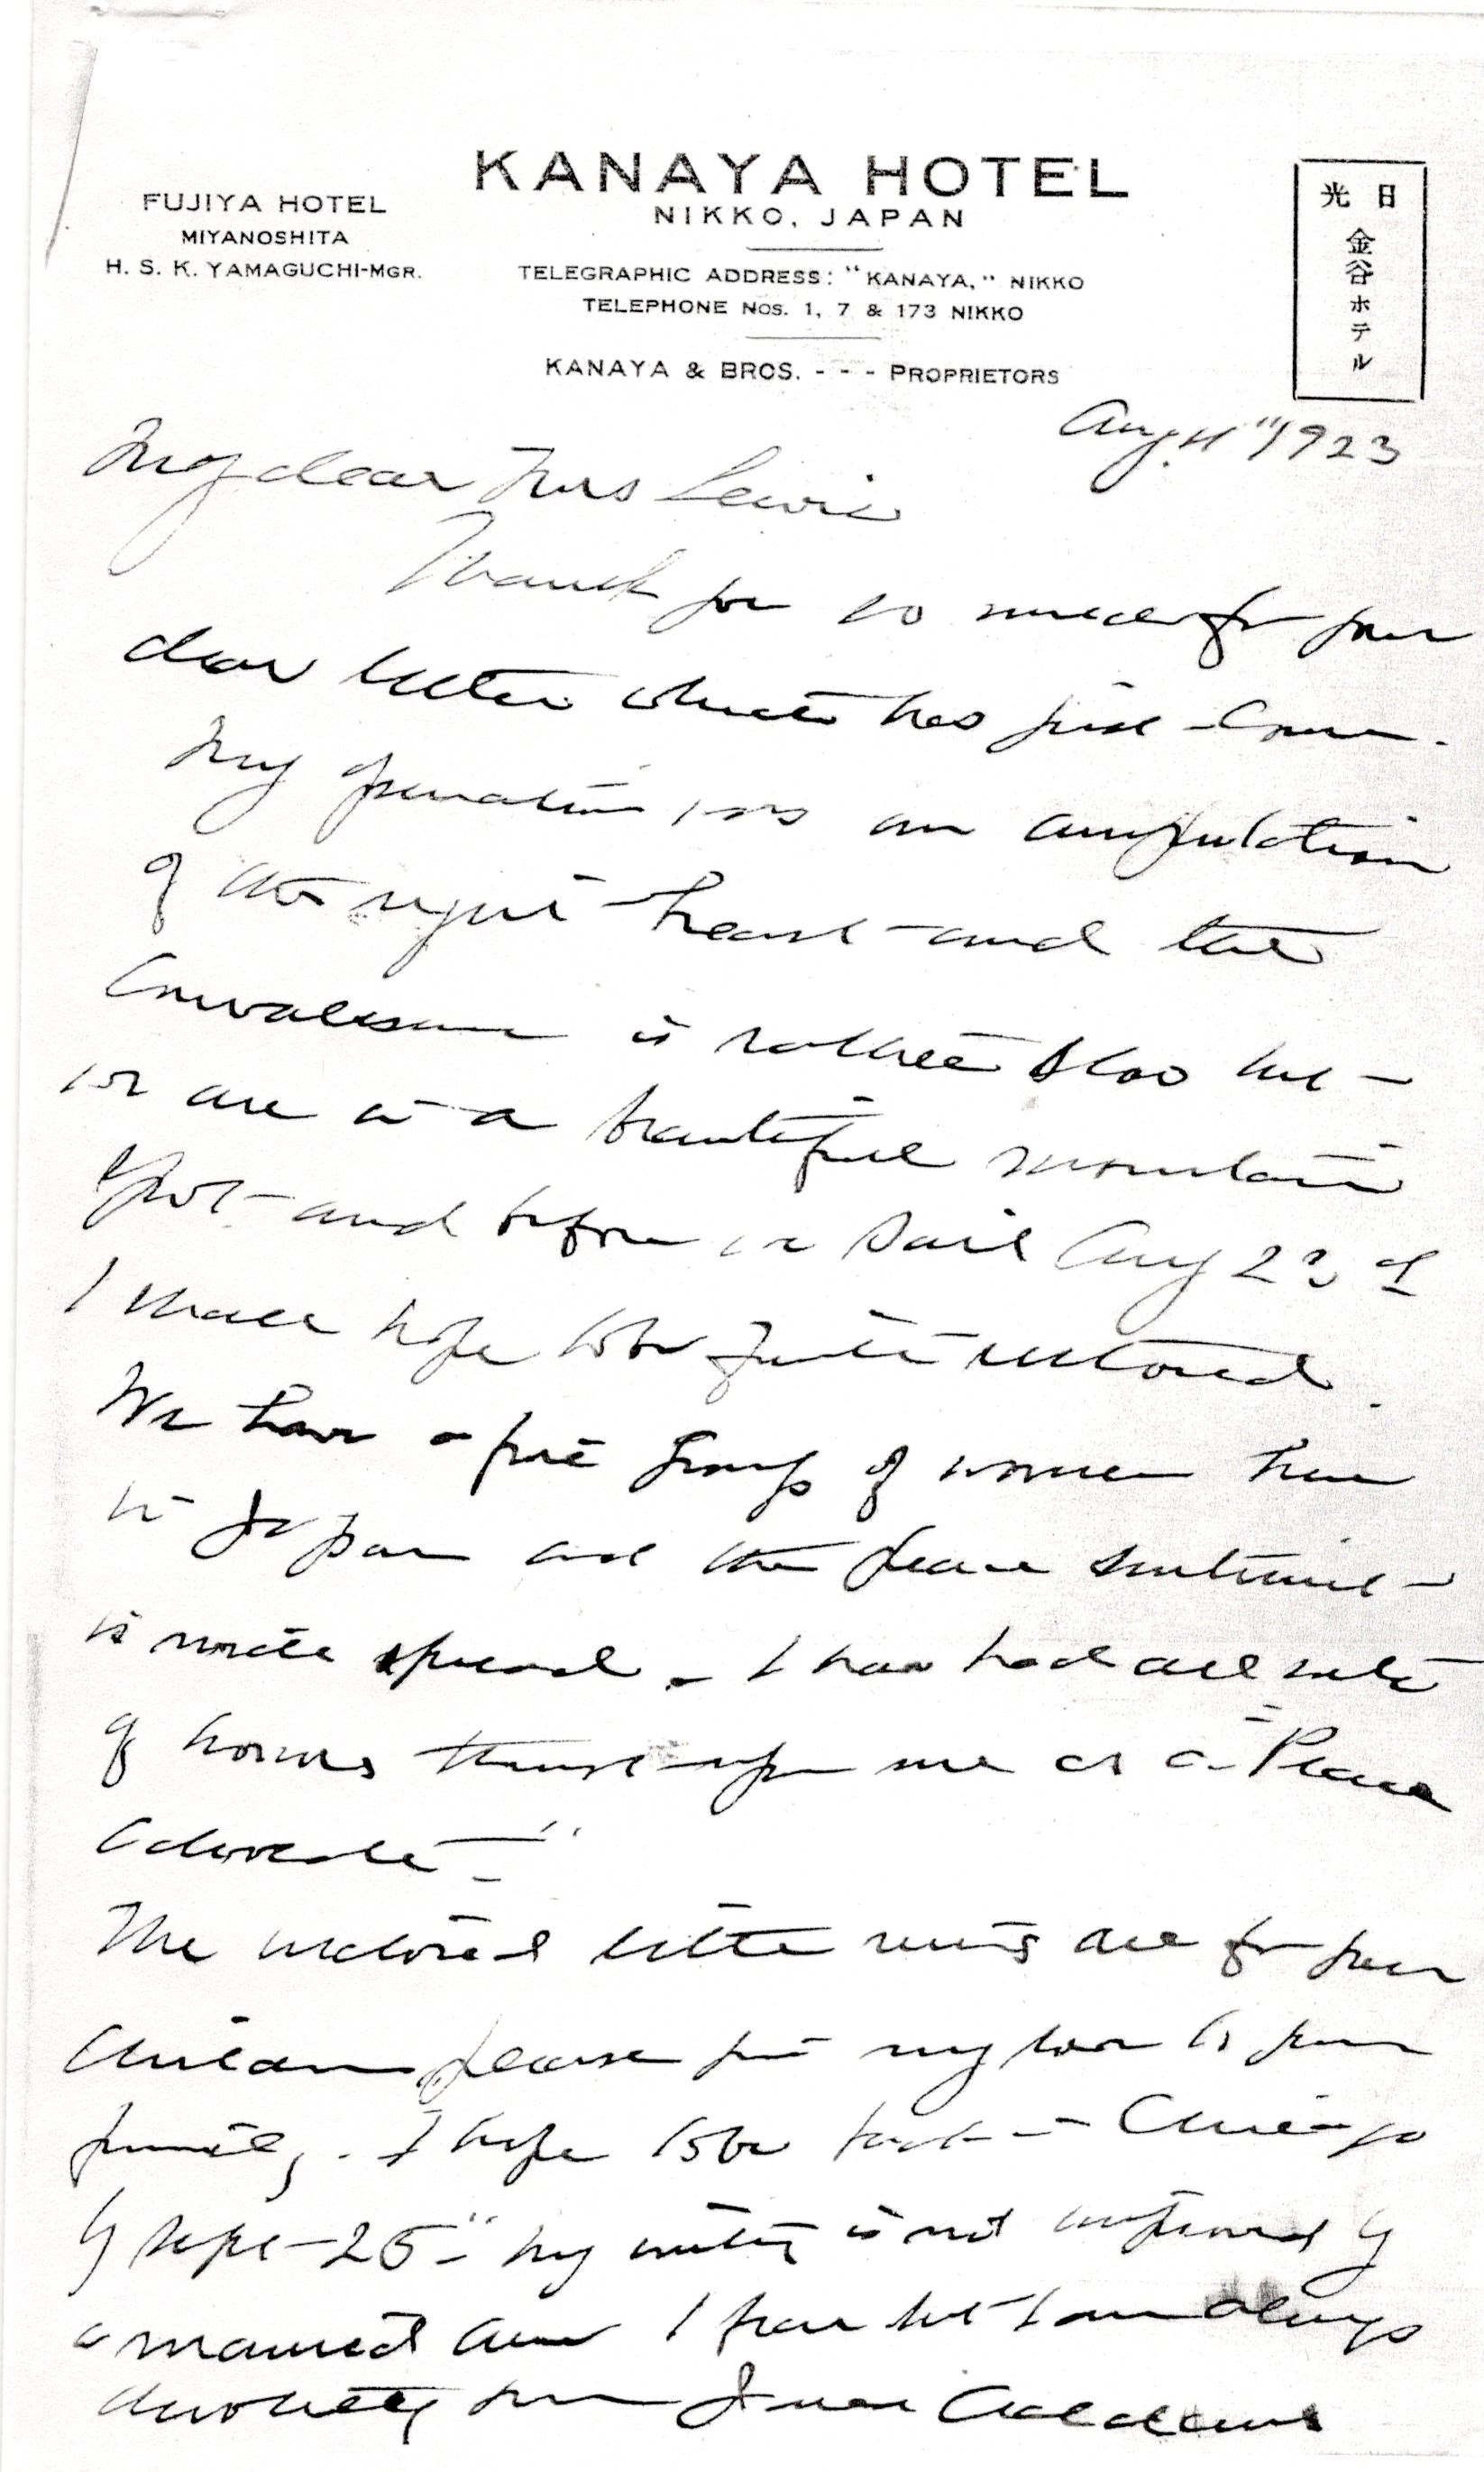 KANAYA HOTEL
NIKKO, JAPAN
FUJIYA HOTEL
MIYANOSHITA
H. S. K. YAMAGUCHI-MGR.
TELEGRAPHIC ADDRESS: "KANAYA," NIKKO
TELEPHONE NOS. 1, 7 & 173 NIKKO
KANAYA & BROS. - - - PROPRIETORS
日光
金谷ホテル
Aug. 11" 1923
My dear Mrs Lewis
Thank you so much for your
dear letter which has just come.
My operation was an amputation
of the right breast and the
convalescence is rather slow but
we are in a beautiful mountain
spot and before we sail Aug 23d
I shall hope to be quite restored.
We have a fine group of women here
in Japan and the peace sentiment
is wide spread. I have had all sorts
of honors thrust upon me as a "Peace
advocate"
The enclosed little are for your
children please give my love to your
family. I hope to be back in Chicago
by Sept 25" My writing is not improved by
a maimed arm I fear but I am always
devotedly yours Jane Addams